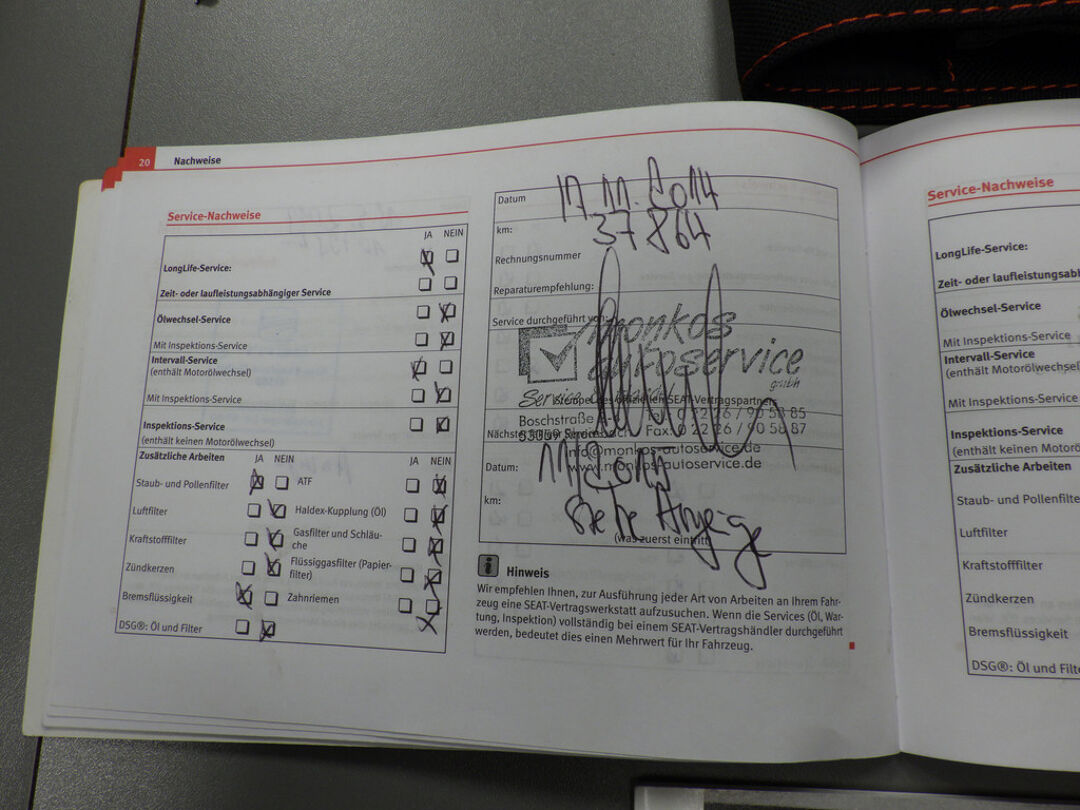 20 Nachweise
Service-Nachweise
JA NEIN
LongLife-Service:
Zeit- oder laufleistungsabhängiger Service
Ölwechsel-Service
Mit Inspektions-Service
Intervall-Service
(enthält Motorölwechsel)
Mit Inspektions-Service
Inspektions-Service
(enthält keinen Motorölwechsel)
Zusätzliche Arbeiten JA NEIN JA NEIN
Staub- und Pollenfilter ATF
Luftfilter Haldex-Kupplung (Öl)
Kraftstofffilter Gasfilter und Schläu-
che
Zündkerzen Flüssiggasfilter (Papier-
filter)
Bremsflüssigkeit Zahnriemen
DSG®: Öl und Filter
Datum 17.11.2014
km: 37864
Rechnungsnummer
Reparaturempfehlung:
Service durchgeführt von:
monkos
autoservice
gmbh
Service
Stempel des offiziellen SEAT-Vertragspartners
Boschstraße Tel.: 0 22 26 / 90 58 85
Fax: 0 22 26 / 90 58 87
info@monkos-autoservice.de
www.monkos-autoservice.de
Datum:
km: siehe Anzeige
(was zuerst eintritt)
i Hinweis
Wir empfehlen Ihnen, zur Ausführung jeder Art von Arbeiten an Ihrem Fahr-
zeug eine SEAT-Vertragswerkstatt aufzusuchen. Wenn die Services (Öl, War-
tung, Inspektion) vollständig bei einem SEAT-Vertragshändler durchgeführt
werden, bedeutet dies einen Mehrwert für Ihr Fahrzeug.
Service-Nachweise
LongLife-Service:
Zeit- oder laufleistungsab
Ölwechsel-Service
Mit Inspektions-Service
Intervall-Service
(enthält Motorölwechsel)
Mit Inspektions-Service
Inspektions-Service
(enthält keinen Motorölwe
Zusätzliche Arbeiten
Staub- und Pollenfilte
Luftfilter
Kraftstofffilter
Zündkerzen
Bremsflüssigkeit
DSG®: Öl und Filte